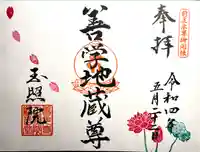 奉拝
令和四年
五月二十二日
善学地蔵尊
玉照院